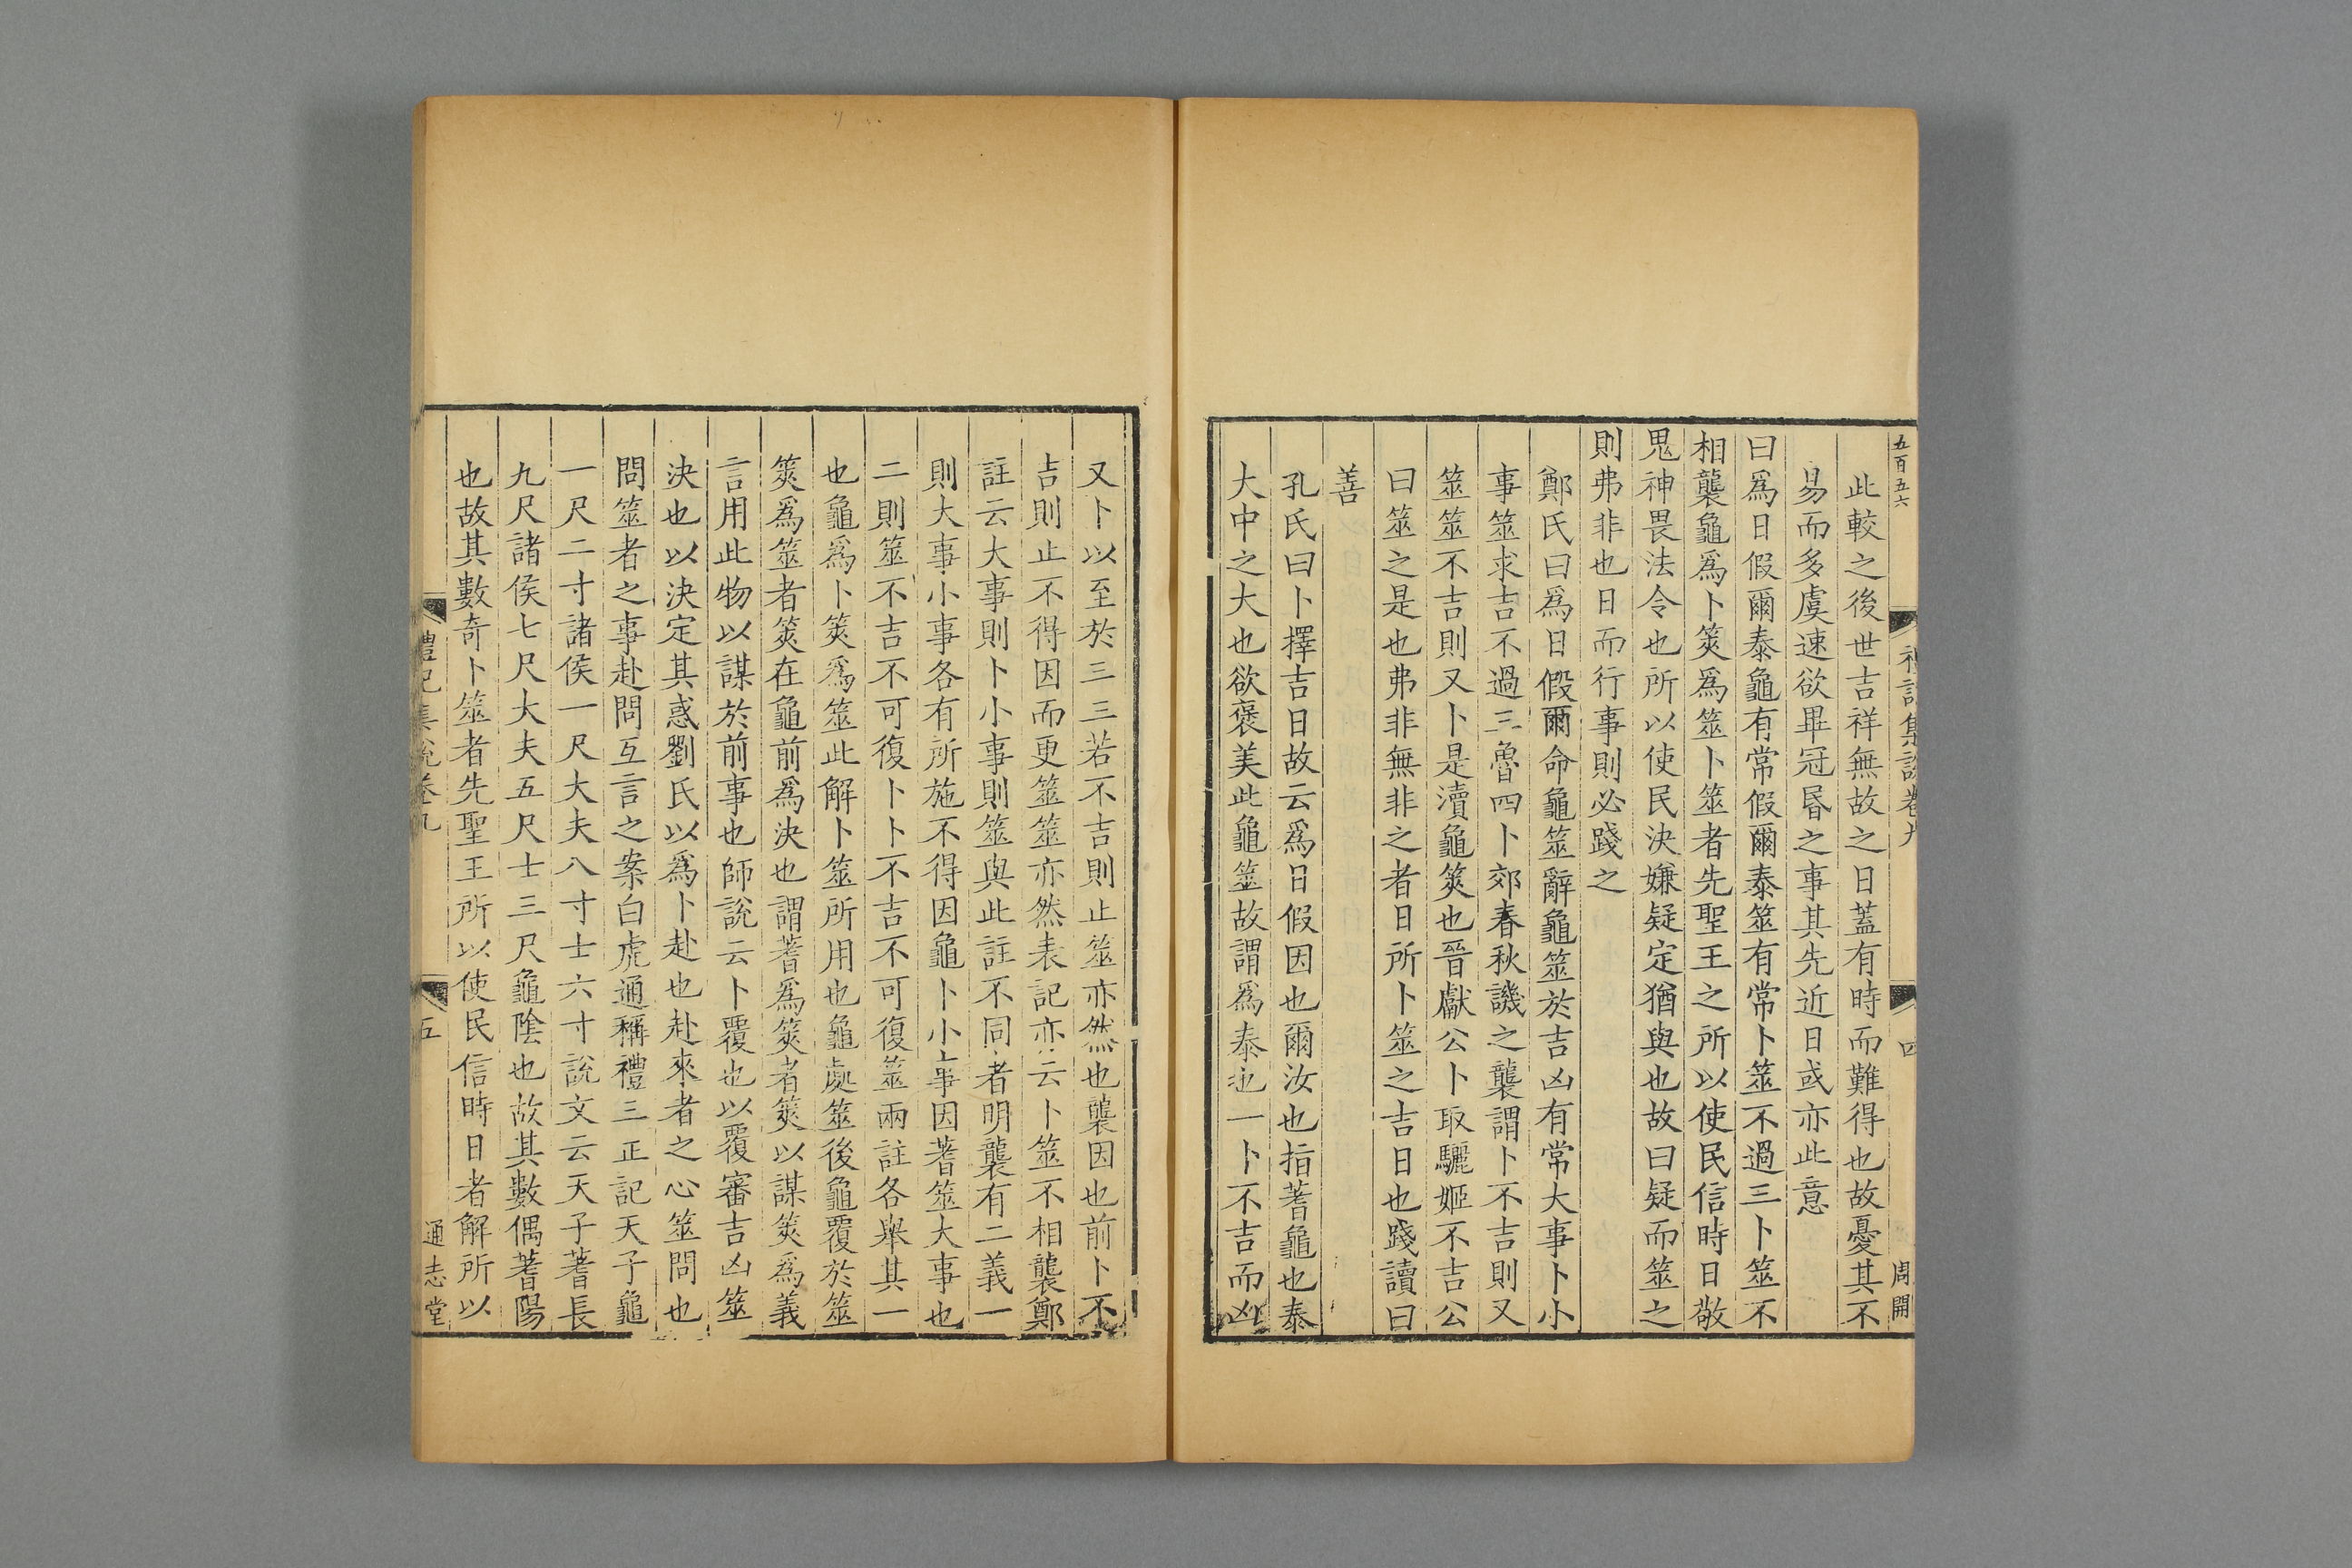 五百五六
禮記集說卷九
四
周開
此較之後世吉祥無故之日蓋有時而難得也故憂其不
易而多虞速欲畢冠昬之事其先近日或亦此意
曰爲日假爾泰龜有常假爾泰筮有常卜筮不過三卜筮不
相襲龜爲卜筴爲筮卜筮者先聖王之所以使民信時日敬
鬼神畏法令也所以使民決嫌疑定猶與也故曰疑而筮之
則弗非也日而行事則必踐之
鄭氏曰爲日假爾命龜筮辭龜筮於吉凶有常大事卜小
事筮求吉不過三魯四卜郊春秋譏之襲謂卜不吉則又
筮筮不吉則又卜是瀆龜筴也晉獻公卜取驪姬不吉公
曰筮之是也弗非無非之者日所卜筮之吉日也踐讀曰
善
孔氏曰卜擇吉日故云爲日假因也爾汝也指蓍龜也泰
大中之大也欲褒美此龜筮故謂爲泰也一卜不吉而凶
又卜以至於三三若不吉則止筮亦然也襲因也前卜不
吉則止不得因而更筮筮亦然表記亦云卜筮不相襲鄭
註云大事則卜小事則筮與此註不同者明襲有二義一
則大事小事各有所施不得因龜卜小事因蓍筮大事也
二則筮不吉不可復卜卜不吉不可復筮兩註各舉其一
也龜爲卜筴爲筮此解卜筮所用也龜處筮後龜覆於筮
筴爲筮者筴在龜前爲決也謂蓍爲筴者筴以謀筴爲義
言用此物以謀於前事也師說云卜覆也以覆審吉凶筮
決也以決定其惑劉氏以爲卜赴也赴來者之心筮問也
問筮者之事赴問互言之案白虎通稱禮三正記天子龜
一尺二寸諸侯一尺大夫八寸士六寸說文云天子蓍長
九尺諸侯七尺大夫五尺士三尺龜陰也故其數偶蓍陽
也故其數奇卜筮者先聖王所以使民信時日者解所以
禮記集說卷九
五
通志堂